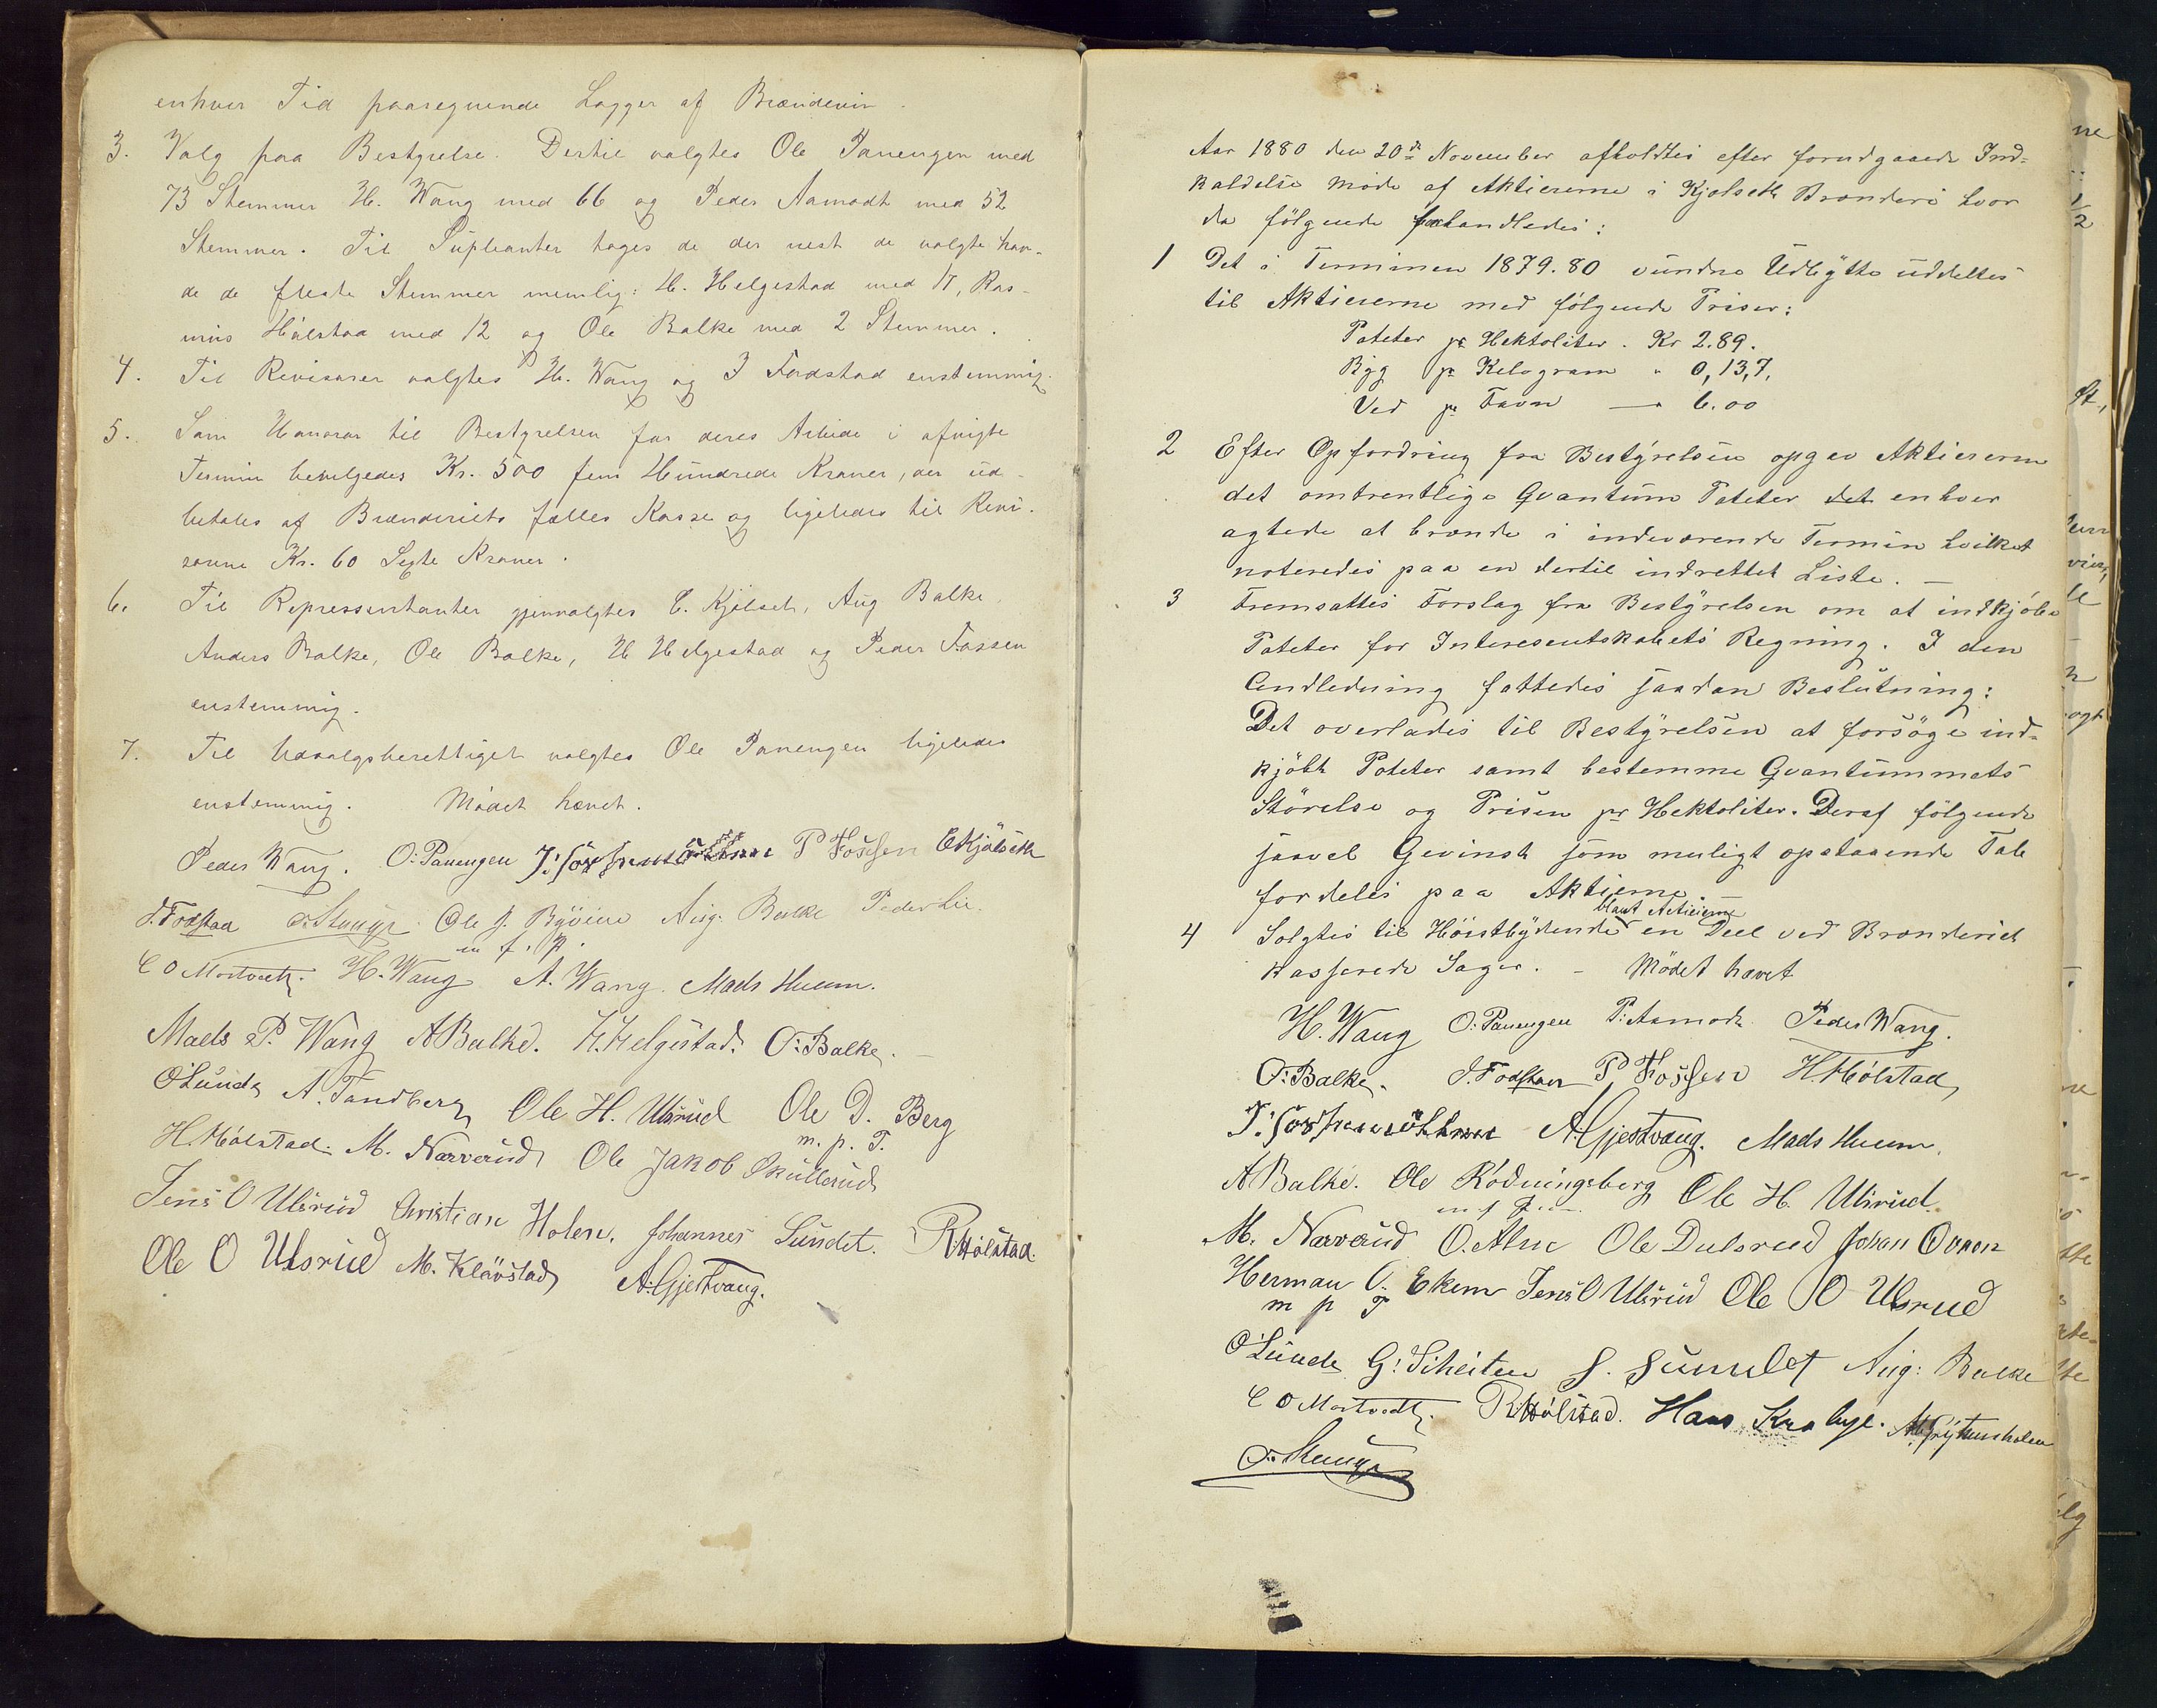 enhver Tid paaregnende Lagger af Brændevin.
3. Valg paa Bestyrelse. Dertil valgtes Ole Panengen med
73 Stemmer H. Wang med 66 og Peder Aamodt med 52
Stemmer. Til Supleanter toges de der nest de valgte hav-
de de fleste Stemmer nemlig: H. Helgestad med 17, Ras-
mus Hölstad med 12 og Ole Balke med 2 Stemmer.
4. Til Revisorer valgtes H. Wang og J Fodstad enstemmig.
5. Som Honorar til Bestyrelsen for deres Arbeide i afvigte
Termin bevilgedes Kr. 500 fem Hundrede Kroner, der ud-
betales af Brænderiets fælles Kasse og ligeledes til Revi-
sorerne Kr. 60 Sexti Kroner.
6. Til Repressentanter gjenvalgtes E. Kjölset, Aug Balke
Anders Balke, Ole Balke, H Helgestad og Peder Fossen
enstemmig.
7. Til Udvalgsberettiget valgtes Ole Panengen ligeledes
enstemmig. Mödet hævet.
Peder Wang. O: Panengen P Fossen EKjölseth
J. Fodstad Ole J. Aug: Balke Peder Lie.
m f. P.
C O Mortvedt. H. Wang A. Wang. Mads Huum.
Mads P. Wang ABalke. H. Helgestad. O: Balke.
O Lunde A. Sandberg Ole H. Ulsrud Ole D. Berg
m. p. P.
H. Hölstad. M. Narverud Ole Jakob Skullerud
Jens O Ulsrud Christian Holen. Johannes Sundet. R. Hölstad.
Ole O Ulsrud M. Klövstad A. Gjestvang.
Aar 1880 den 20de November afholdtes efter forudgaaede Ind-
kaldelse möde af Aktiererne i Kjølseth Brænderi hvor
da fölgende forhandledes:
1 Det i Terminen 1879.80 vundne Udbytte uddeltes
til Aktiererne med fölgende Priser:
Poteter pr Hektoliter. Kr 2.89.
Byg pr Kelogram " 0,13,7,
Ved pr Favn — " 6.00
2 Efter Opfordring fra Bestyrelsen opgav Aktiererne
det omtrentlige Qvantum Poteter det enhver
agtede at brænde i indeværende Termin hvilket
noteredes paa en dertil indrettet Liste. —
3 Fremsattes Forslag fra Bestyrelsen om at indkjöbe
Poteter for Interesentskabets Regning. I den
Andledning fattedes saadan Beslutning:
Det overlades til Bestyrelsen at forsöge ind-
kjöbt Poteter samt bestemme Qvantummets
Störelse og Prisen pr Hektoliter. Deraf fölgende
saavel Gevinst som muligt opstaaende Tab
fordeles paa Aktierne. —
blant Actieierne
4 Solgtes til Höistbydende en Deel ved Brænderiet
kasserede Sager. — Mödet hævet
H. Wang O: Panengen P: Aamodt Peder Wang.
O: Balke. J. Fodstad P Fossen H. Hölstad
A. Gjestvang. Mads Huum.
ABalke. Ole Rödningsberg Ole H. Ulsrud.
M. Narverud O. Alm Ole Dulsrud Johan Ovren
Herman O. Ekern Jens O Ulsrud Ole O Ulsrud
m p P
O Lunde J. Sundet Aug: Balke
C O Mortvedt. R. Hölstad. Hans Krabye.